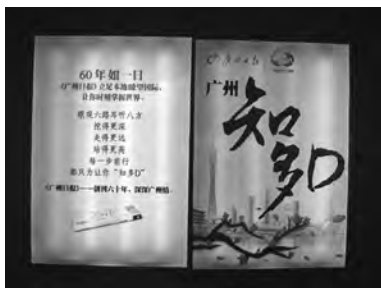 60年如一日
《广州日报》立足本地瞭望国际，
让你时刻掌握世界。
眼观六路耳听八方
挖得更深
走得更远
站得更高
每一步前行
都只为让你“知多D”
《广州日报》——创刊六十年，深深广州情。
广州日报
广州
知
多D